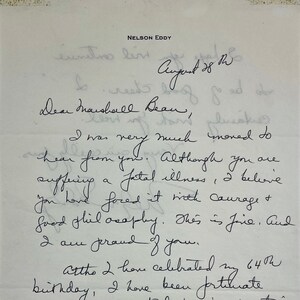 NELSON EDDY
August 28th
Dear Marshall Bean,
I was very much moved to
hear from you. Although you are
suffering a fatal illness, I believe
you have faced it with courage &
good philosophy. This is fine. And
I am proud of you.
Altho I have celebrated my 64th
birthday, I have been fortunate